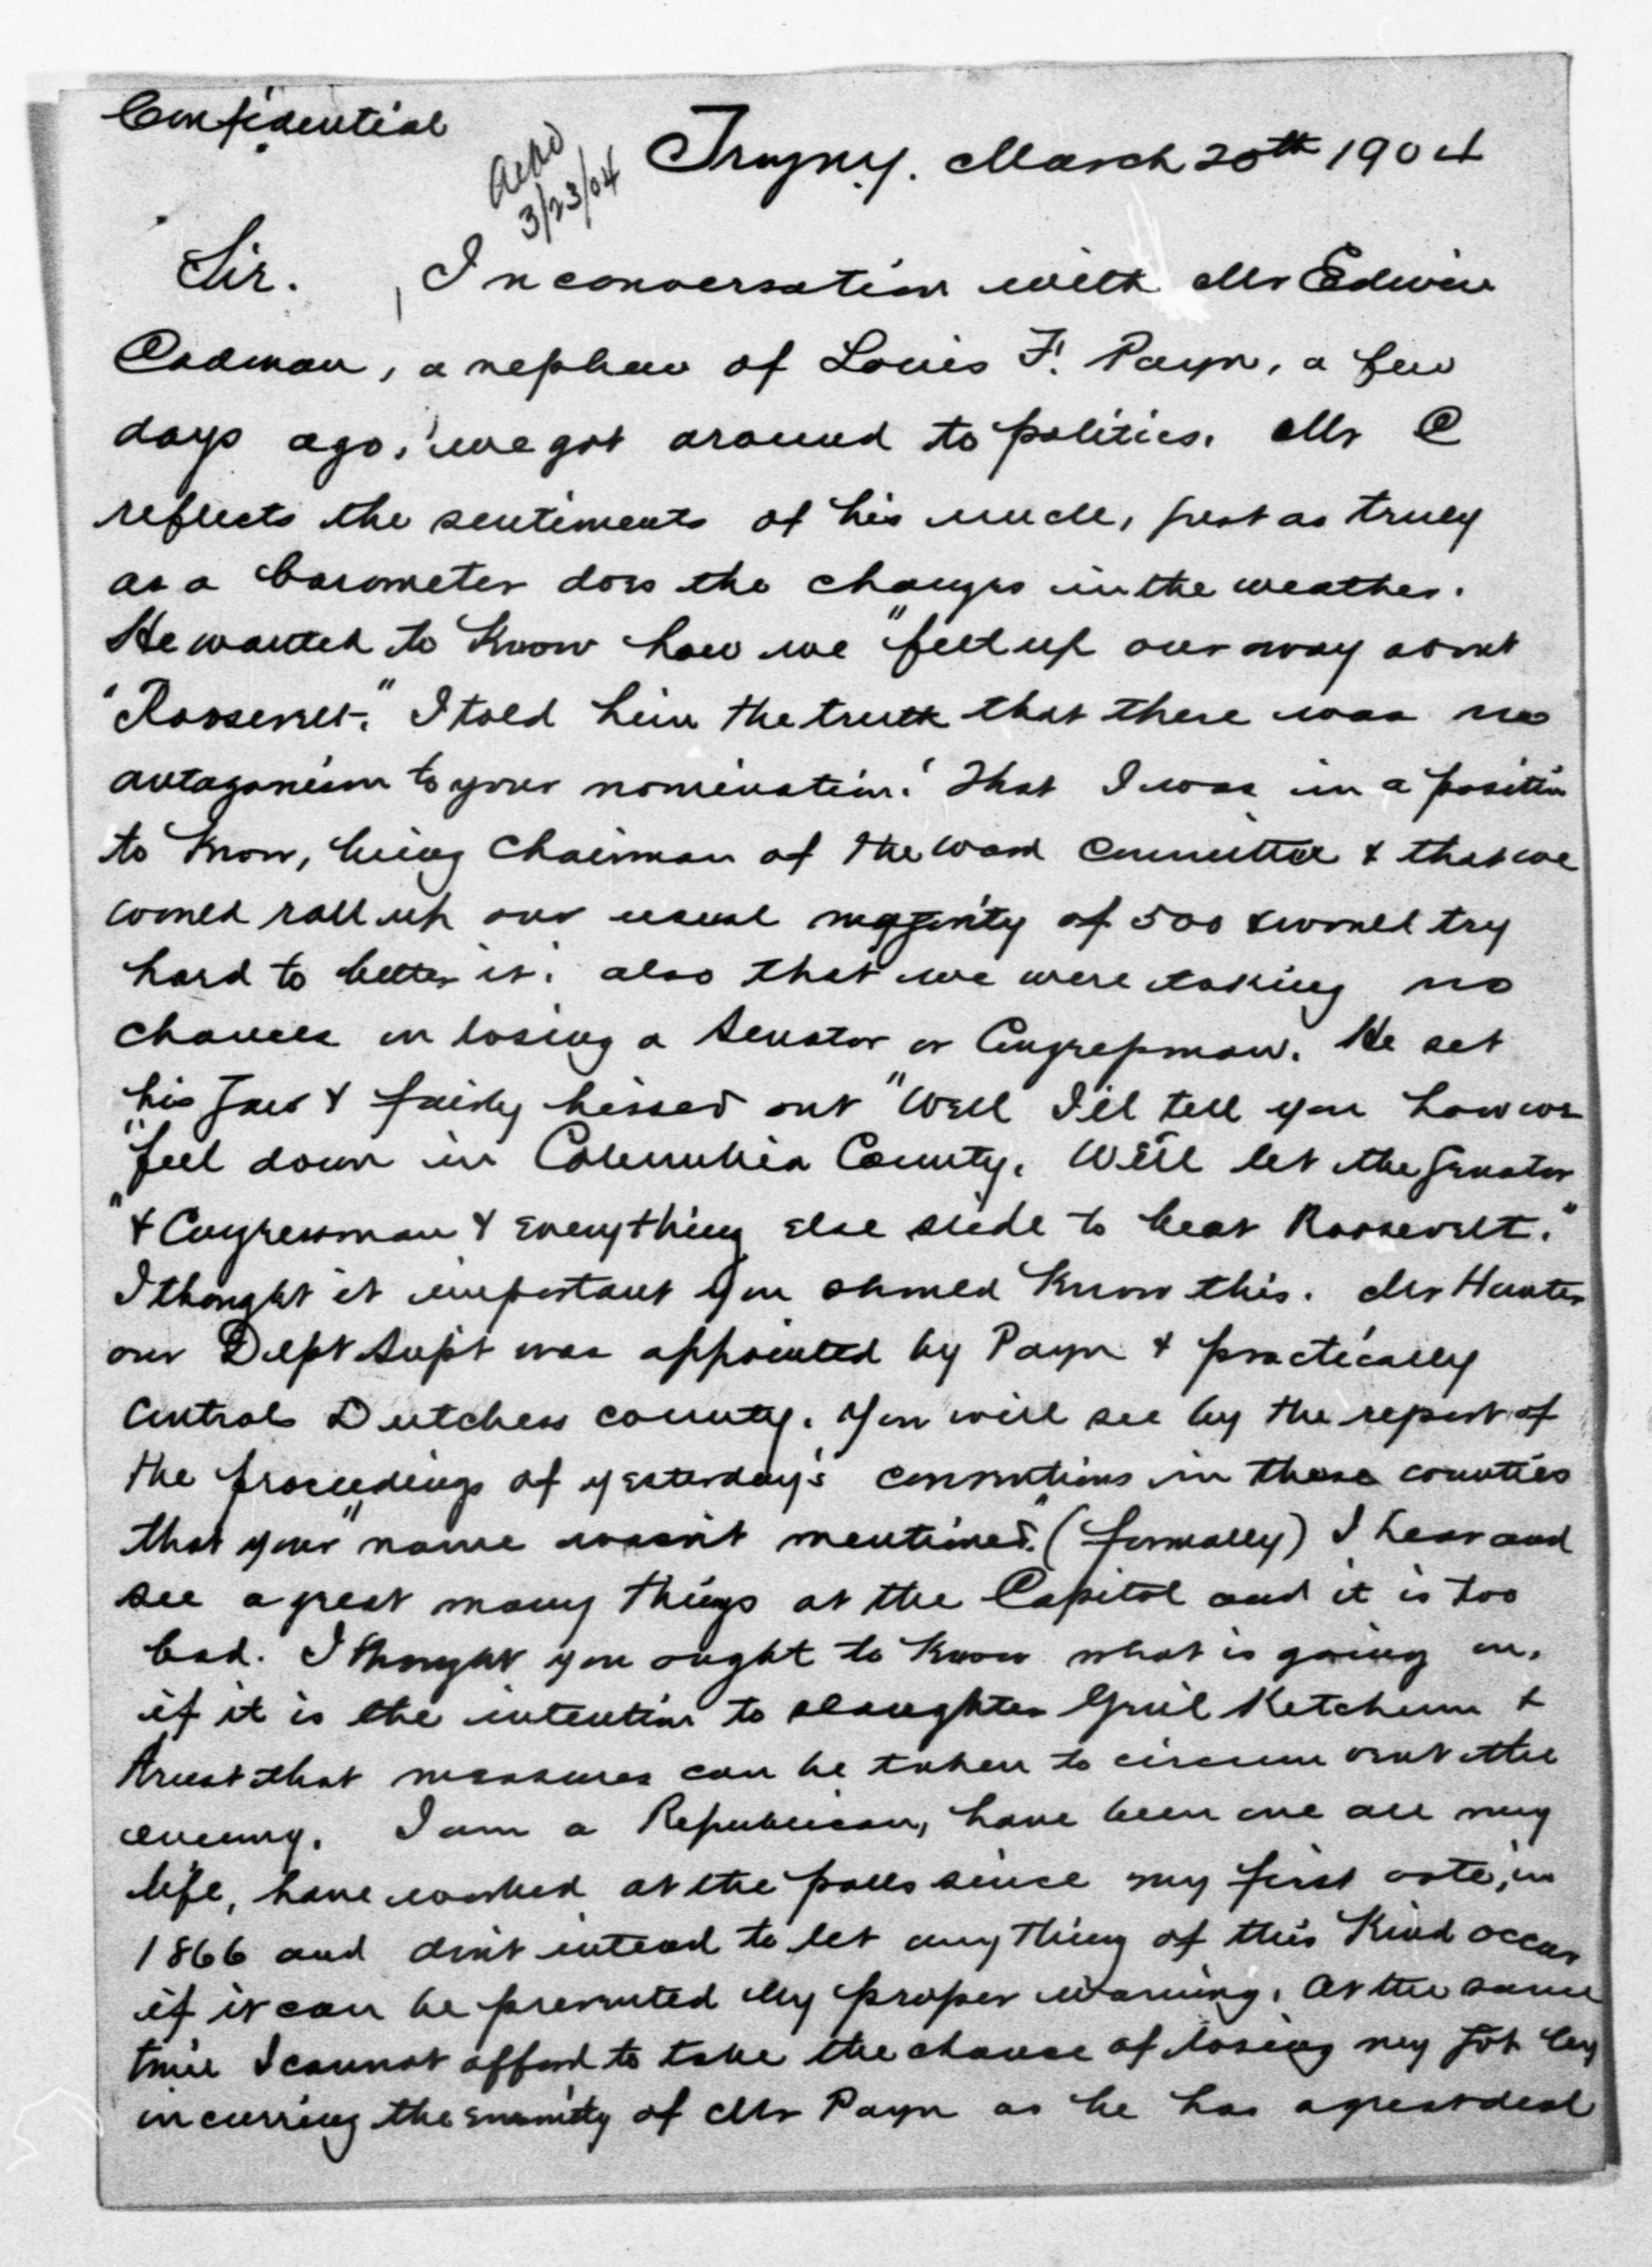 Confidential
Ackd
3/23/04
Troy N.Y. March 20th 1904
Sir. In conversation with Mr Edwin
Cadman, a nephew of Louis F. Payn, a few
days ago, we got around to politics. Mr C
reflects the sentiments of his uncle, just as truly
as a barometer does the changes in the weather.
He wanted to know how we "felt up our way about
"Roosevelt." I told him the truth that there was no
antagonism to your nomination. That I was in a position
to know, being Chairman of the ward committee & that we
would roll up our usual majority of 500 & would try
hard to better it. also that we were taking no
chances on losing a Senator or Congressman. He set
his jaw & fairly hissed out "Well I'll tell you how we
"feel down in Columbia County. We'll let the Senator
"& Congressman & Everything Else slide to beat Roosevelt."
I thought it important you should know this. Mr Hunter
our Dept Supt was appointed by Payn & practically
controls Dutchess county. You will see by the report of
the proceedings of yesterday's conventions in these counties
that your "name wasn't mentioned." (formally) I hear and
see a great many things at the Capitol and it is too
bad. I thought you ought to know what is going on,
if it is the intention to slaughter Ketchum &
trust that measures can be taken to circumvent the
enemy. I am a Republican, have been one all my
life, have worked at the polls since my first vote, in
1866 and don't intend to let any thing of this Kind occur
if it can be prevented by proper warning. At the same
time I cannot afford to take the chance of losing my job by
incurring the enmity of Mr Payn as he has a great deal